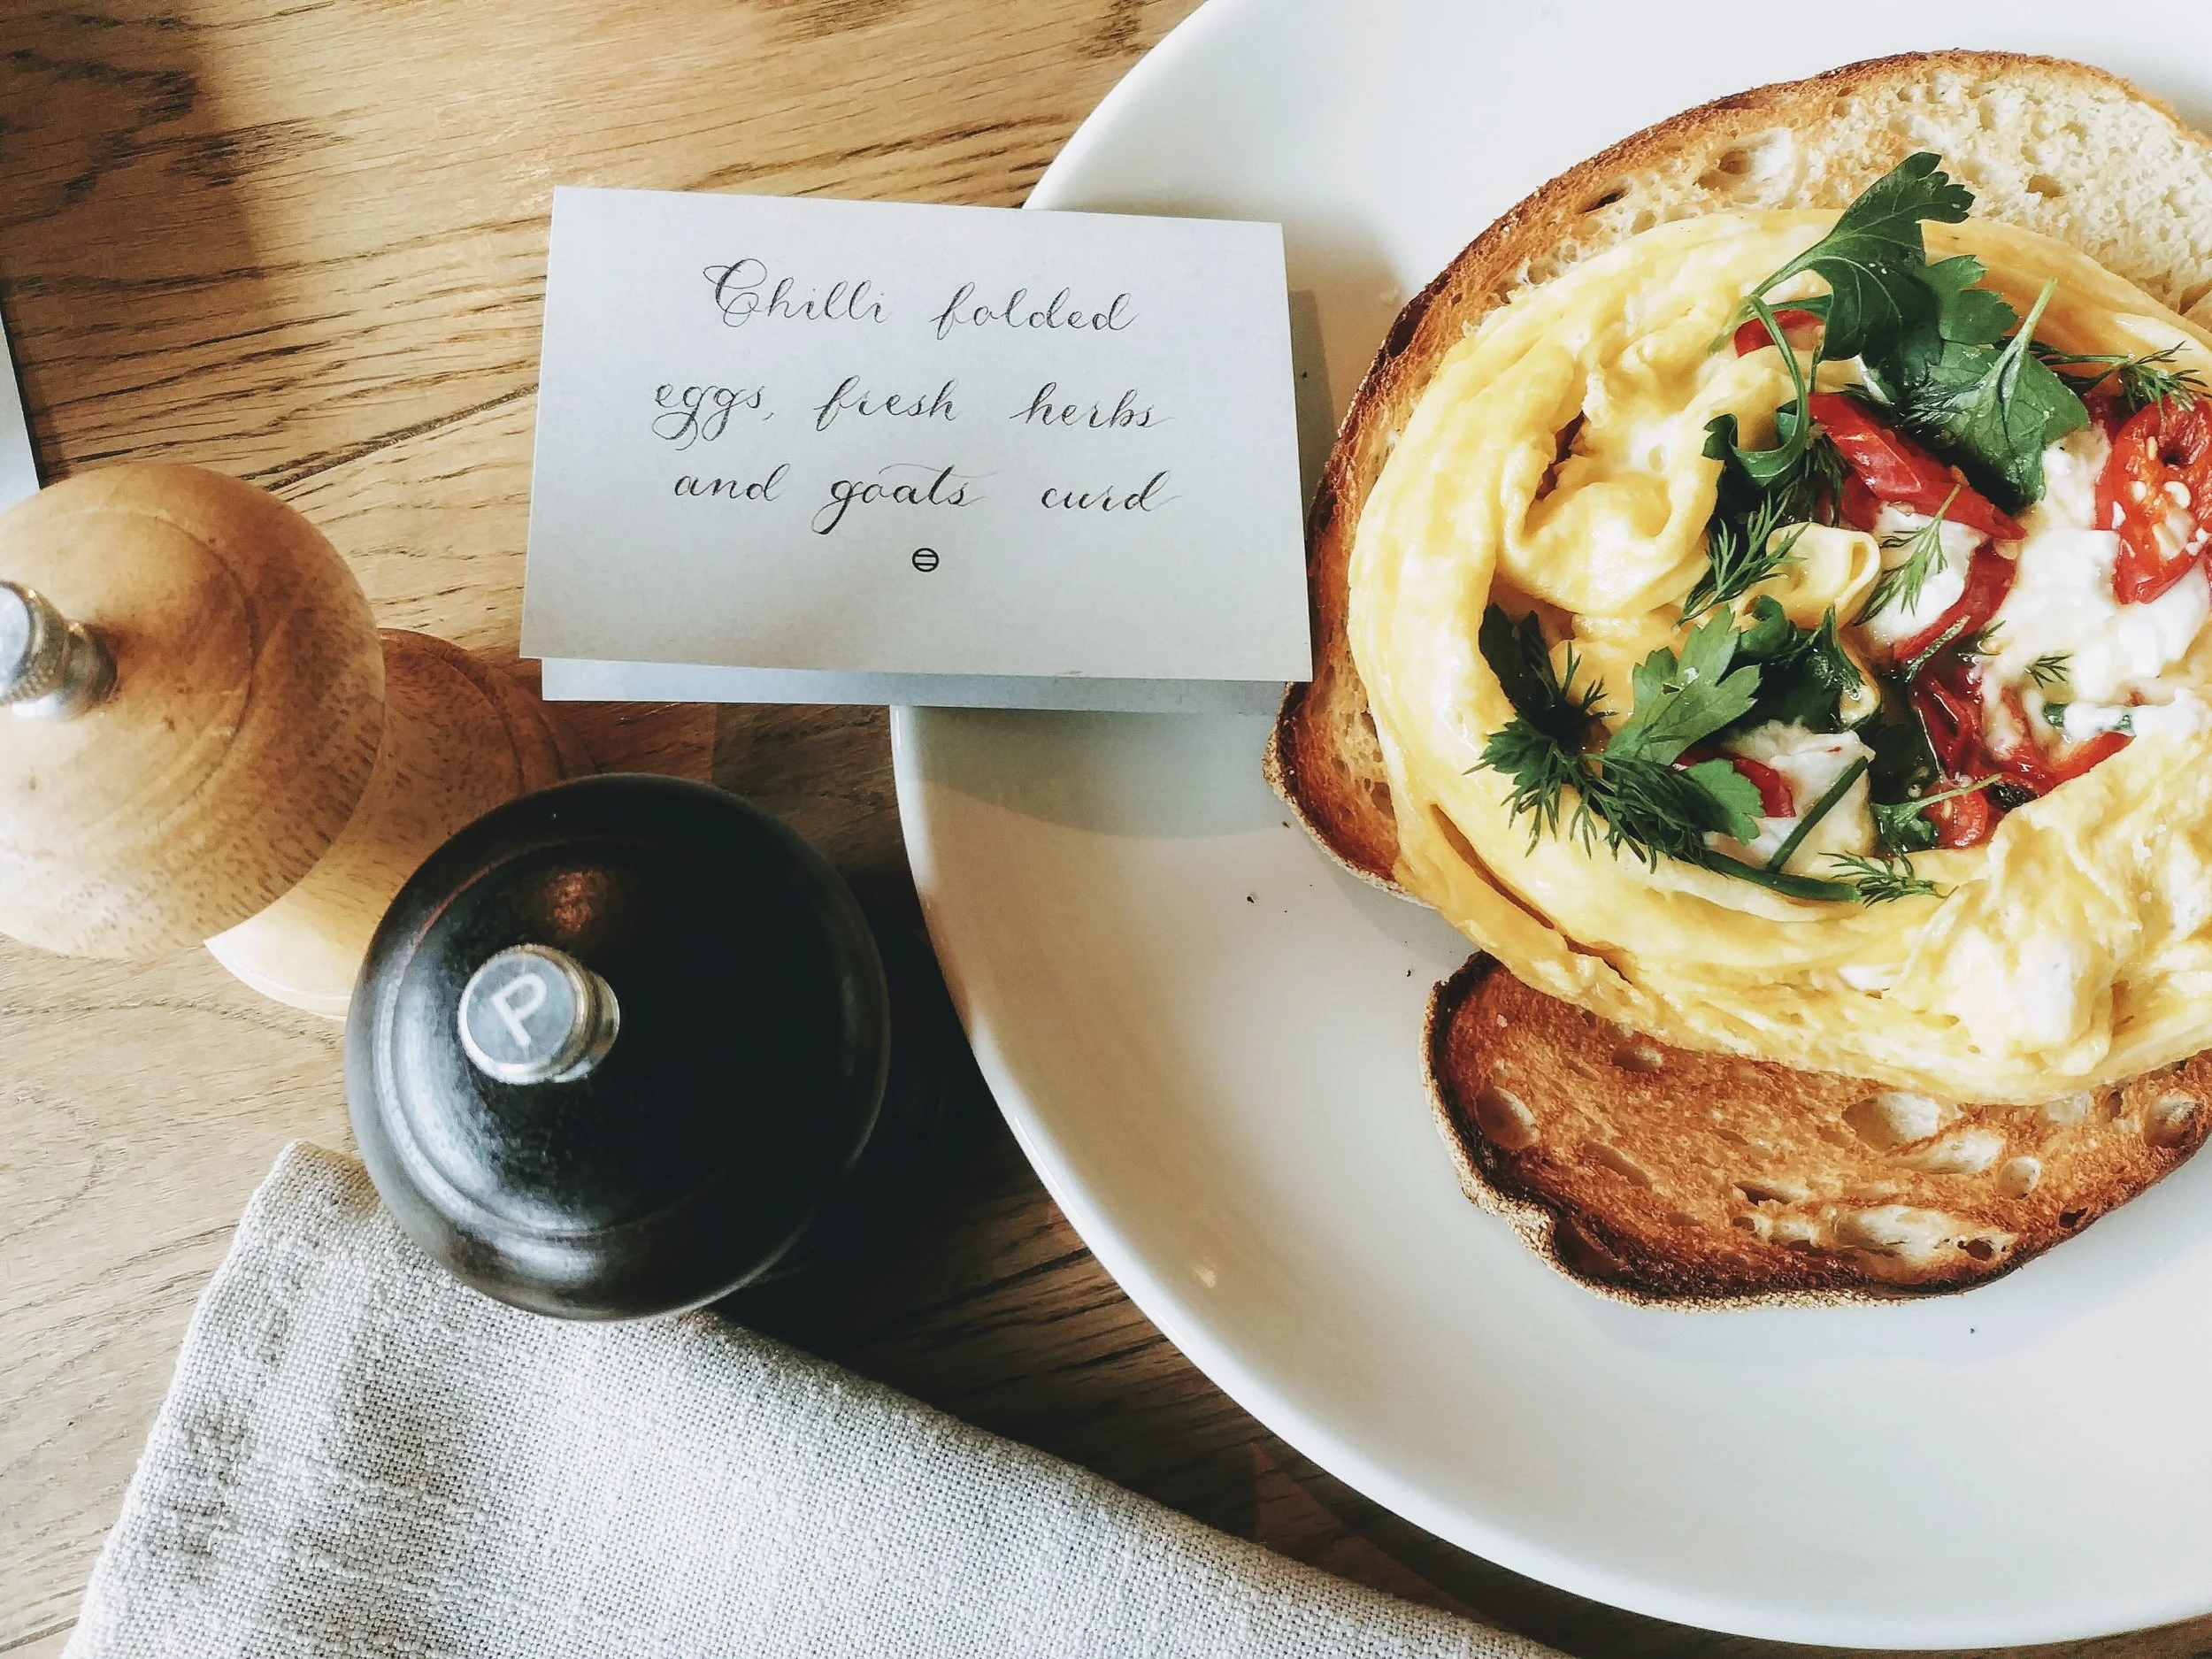 Chilli folded
eggs, fresh herbs
and goats curd
P